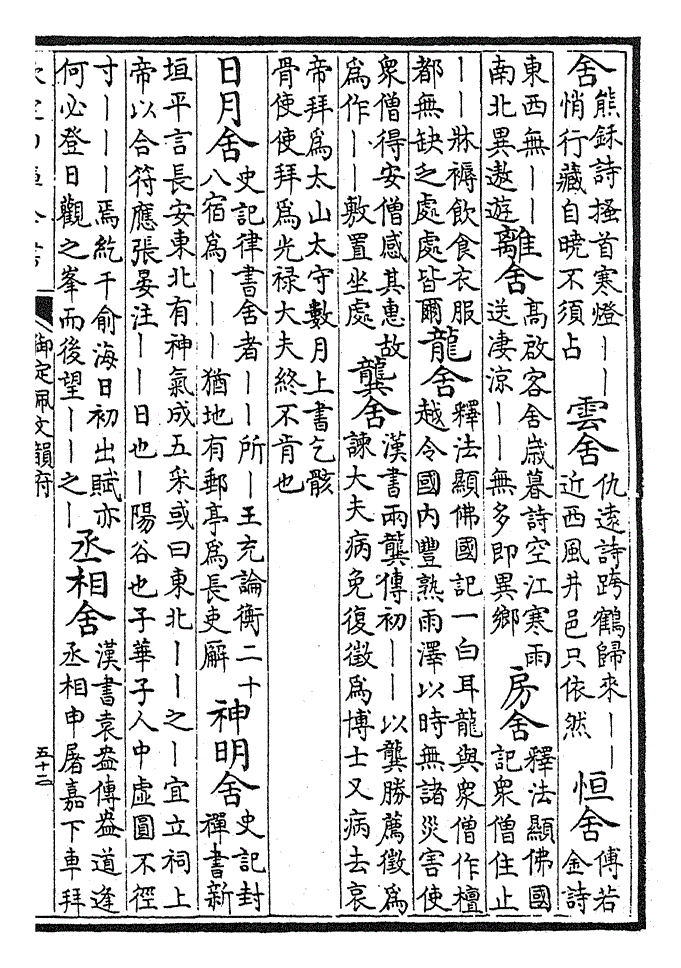 舍
熊鉌詩搔首寒燈丨丨
悄行藏自曉不須占
雲舍
仇遠詩跨鶴歸來丨丨
近西風井邑只依然
恒舍
傅若
金詩
東西無丨丨
南北異遨遊
離舍
高啟客舍歲暮詩空江寒雨
送凄涼丨丨無多即異鄉
房舍
釋法顯佛國
記衆僧住止
丨丨牀褥飲食衣服
都無缺乏處處皆爾
龍舍
釋法顯佛國記一白耳龍與衆僧作檀
越令國内豐熟雨澤以時無諸災害使
衆僧得安僧感其惠故
爲作丨丨敷置坐處
龔舍
漢書兩龔傳初丨丨以龔勝薦徵爲
諫大夫病免復徵爲博士又病去哀
帝拜爲太山太守數月上書乞骸
骨使使拜爲光禄大夫終不肯也
日月舍
史記律書舍者丨丨所丨王充論衡二十
八宿爲丨丨丨猶地有郵亭爲長吏廨
神明舍
史記封
禪書新
垣平言長安東北有神氣成五采或曰東北丨丨之丨宜立祠上
帝以合符應張晏注丨丨日也丨陽谷也子華子人中虚圓不徑
寸丨丨丨焉紇干俞海日初出賦亦
何必登日觀之峯而後望丨丨之丨
丞相舍
漢書袁盎傳盎道逢
丞相申屠嘉下車拜
御定佩文韻府
五十三